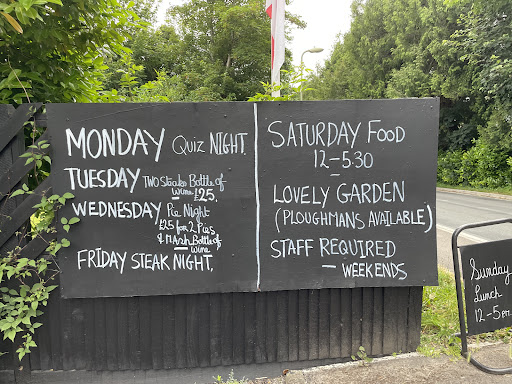 MONDAY Quiz NIGHT.
TUESDAY TWO Steaks Bottle of
wine £25.
WEDNESDAY Pie Night
£25 for 2 Pies
& Mash, Bottle of
wine
FRIDAY STEAK NIGHT.
SATURDAY FOOD
12-5.30
LOVELY GARDEN
(PLOUGHMANS AVAILABLE)
STAFF REQUIRED
— WEEKENDS
Sunday
Lunch
12-5pm